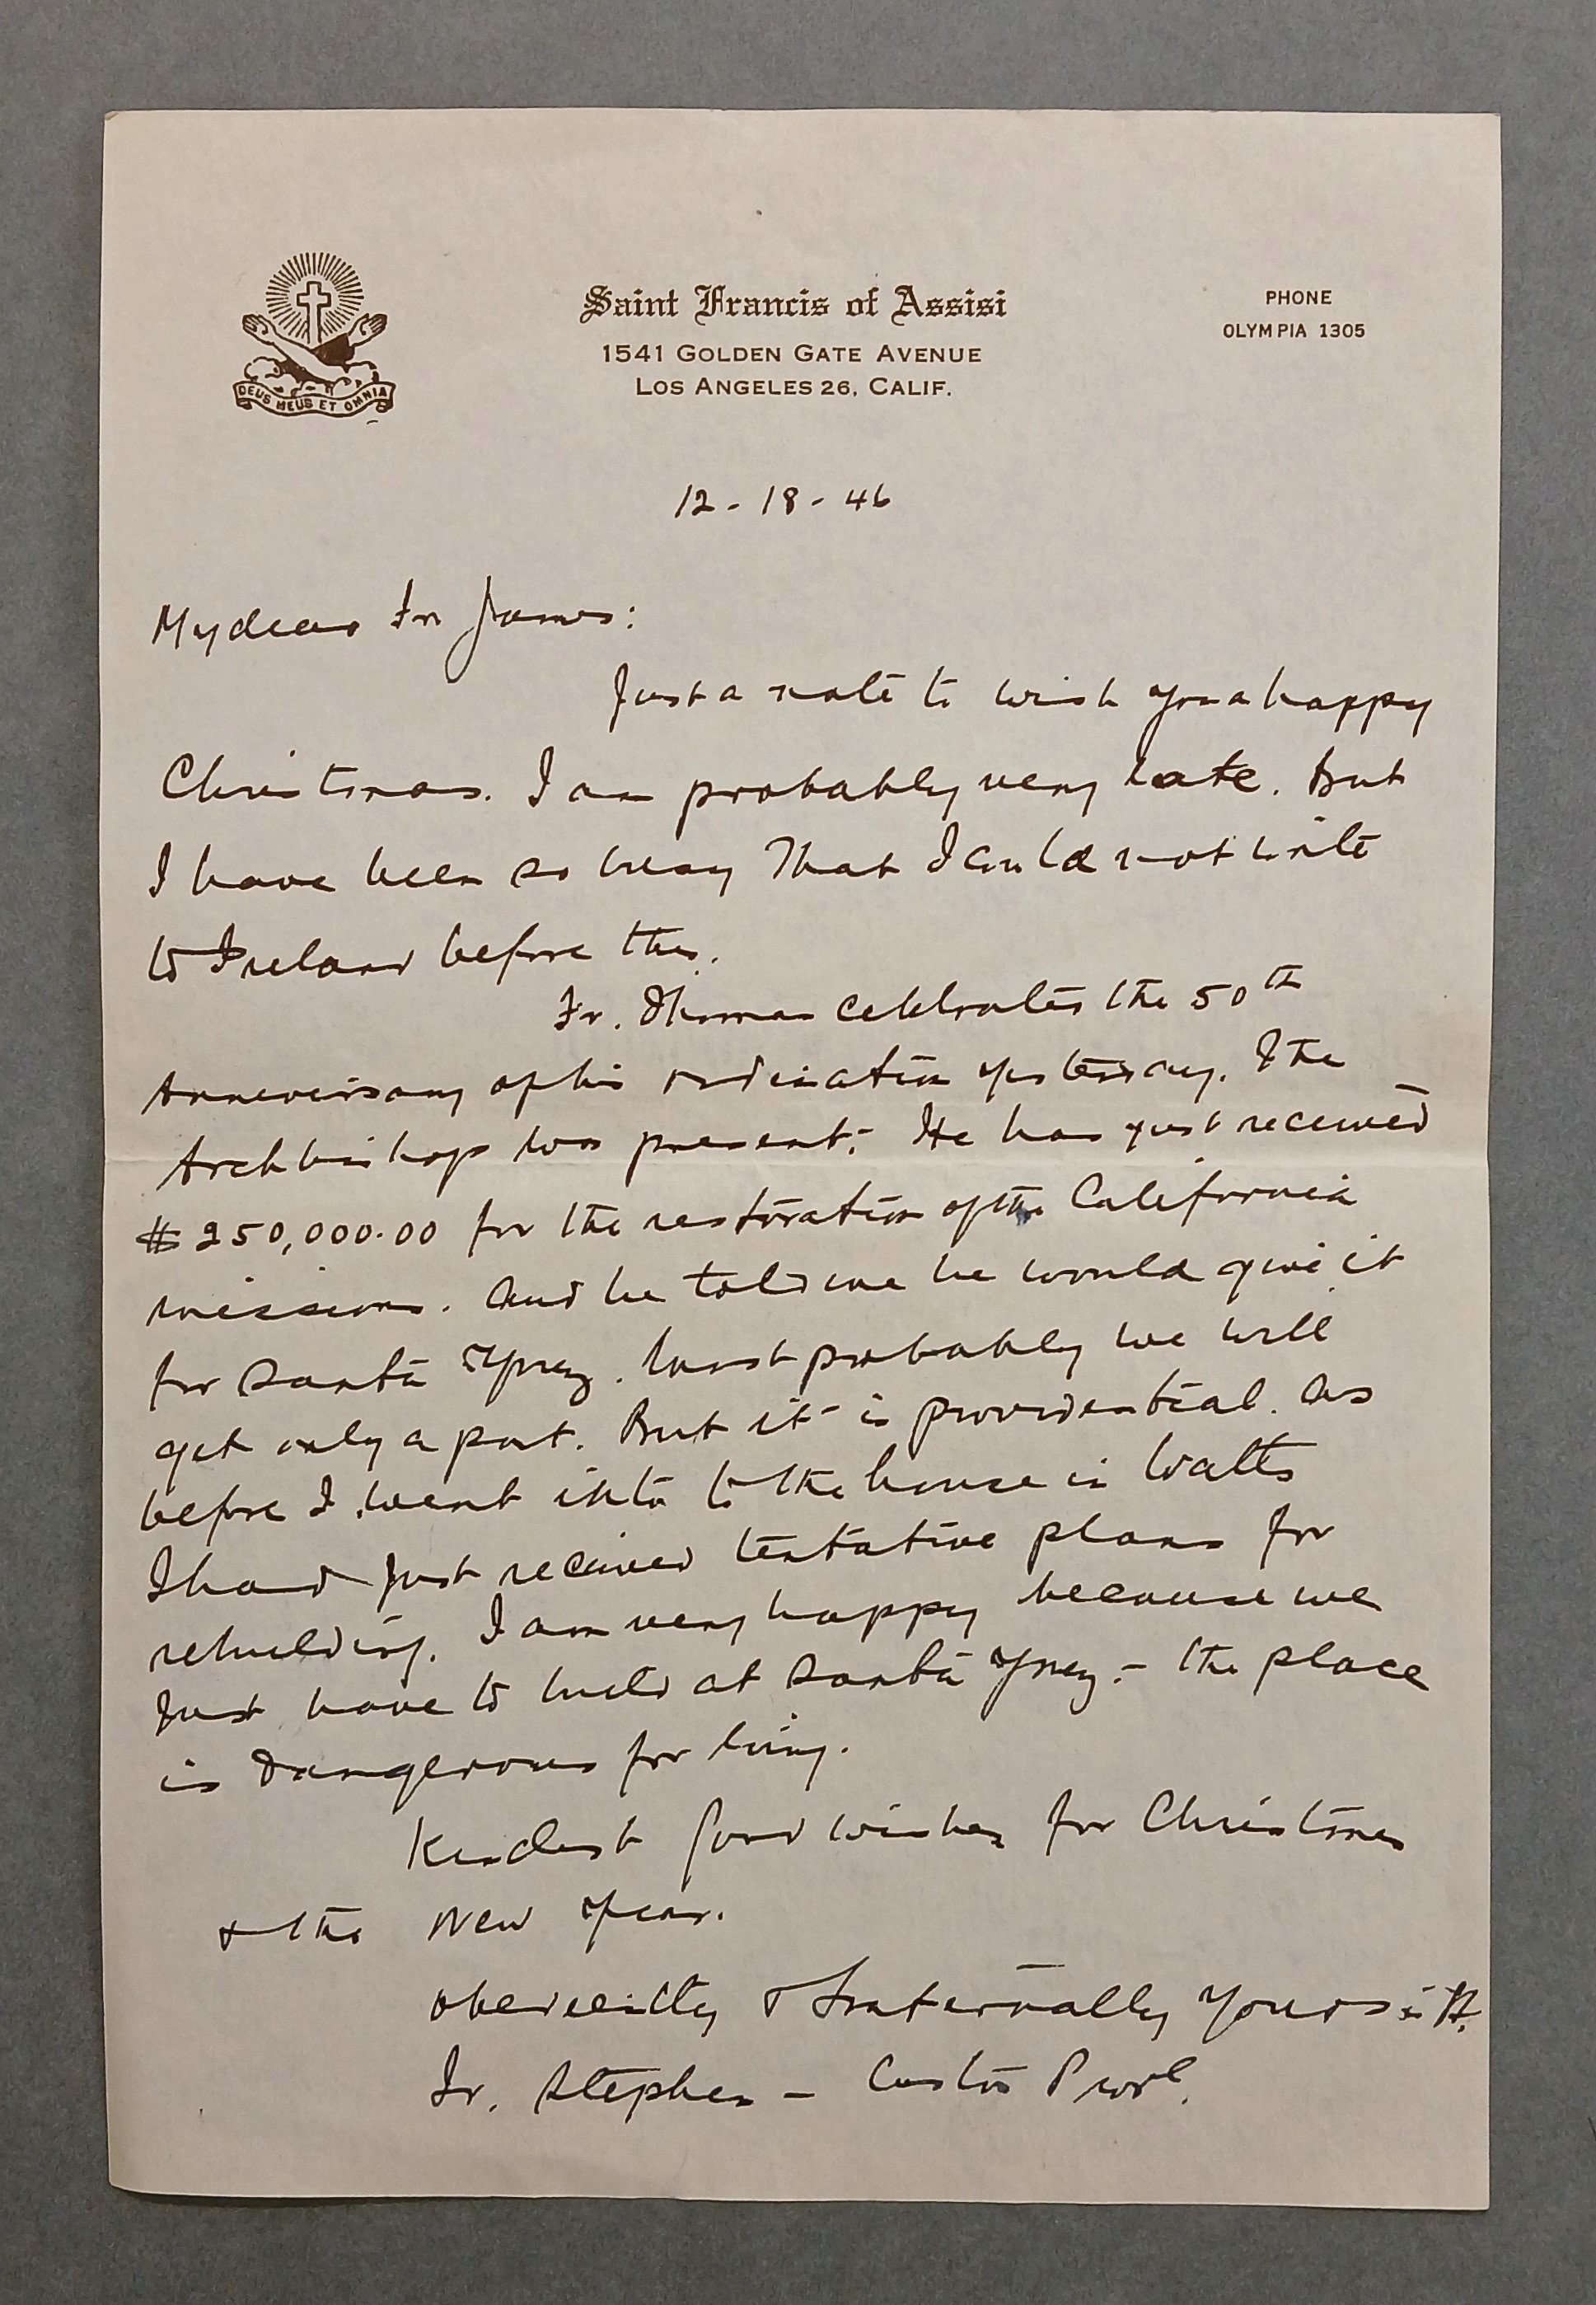 DEUS MEUS ET OMNIA
Saint Francis of Assisi
1541 GOLDEN GATE AVENUE
LOS ANGELES 26, CALIF.
PHONE
OLYMPIA 1305
12-18-46
My dear Fr James:
Just a note to wish you a happy
Christmas. I am probably very late. But
I have been so busy that I could not write
to Ireland before this.
Fr. Thomas celebrated the 50th
Anniversary of his ordination yesterday. The
Archbishop was present; He has just received
$250,000.00 for the restoration of the California
missions. And he told me he would give it
for Santa Ynez. Most probably we will
get only a part. But it is providential. As
before I went into to the house in Watts
I had just received tentative plans for
rebuilding. I am very happy because we
just have to build at Santa Ynez - the place
is dangerous for living.
Kindest good wishes for Christmas
& the New Year.
obediently & fraternally yours in
Fr. Stephen - Custos Provl.